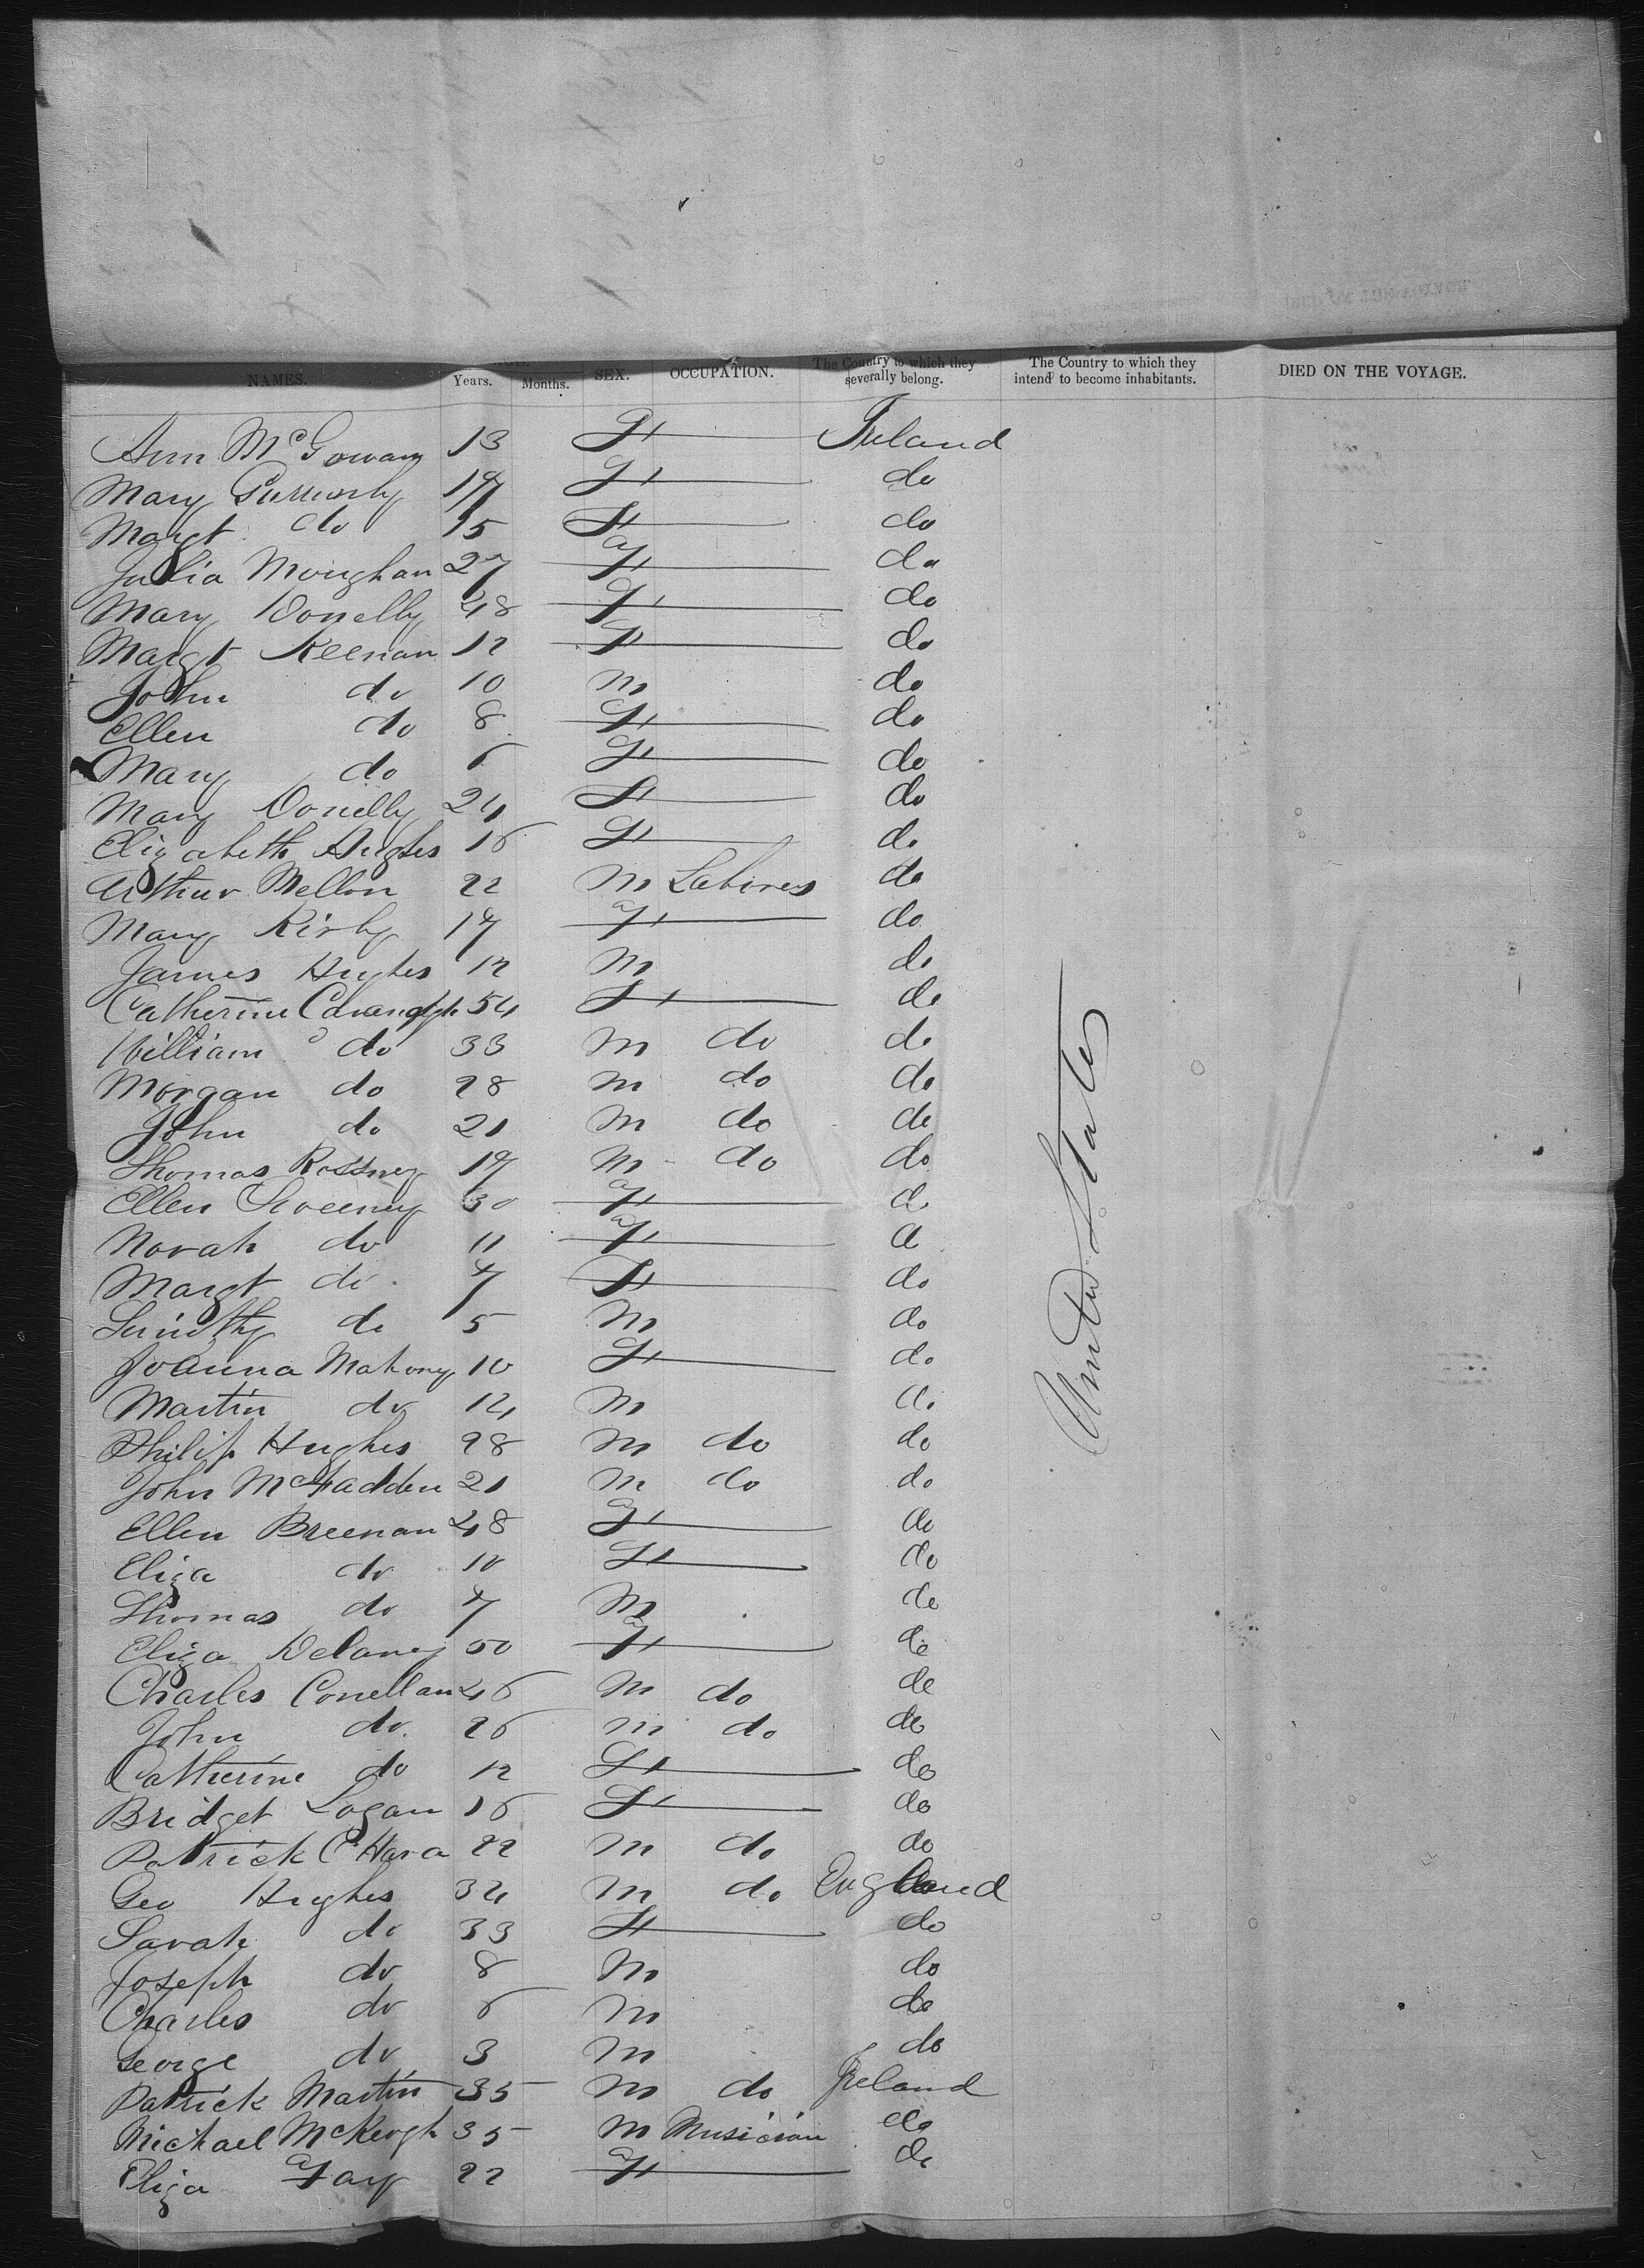 NAMES. Years. Months. SEX. OCCUPATION. The Country to which they severally belong. The Country to which they intend to become inhabitants. DIED ON THE VOYAGE.
Ann McGowan 13 F Ireland
Mary 17 F do
Margt do 15 F do
Julia Monghan 27 F do
Mary Donelly 48 F do
Margt Keenan 12 F do
John do 10 M do
Ellen do 8 F do
Mary do 6 F do
Mary Donelly 24 F do
Elizabeth Hughes 16 F do
Arthur Mellon 22 M Labores do
Mary Kirby 17 F do
James Hughes 12 M do
Catherine Cavanagh 54 F do
William do 33 M do do
Morgan do 28 M do do
John do 21 M do do
Thomas Rossney 17 M do do
Ellen Sweeney 30 F do
Norah do 11 F do
Margt do 7 F do
Timothy do 5 M do
Joanna Mahony 10 F do
Martin do 14 M do
Philip Hughes 28 M do do
John McFadden 21 M do do
Ellen Breenan 48 F do
Eliza do 10 F do
Thomas do 7 M do
Eliza Delaney 50 F do
Charles Conellan 46 M do do
John do 26 M do do
Catherine do 12 F do
Bridget Logan 16 F do
Patrick O'Hara 22 M do do
Geo Hughes 34 M do England
Sarah do 33 F do
Joseph do 8 M do
Charles do 6 M do
George do 3 M do
Patrick Martin 35 M do Ireland
Michael McKeogh 35 M Musician do
Eliza Fay 22 F do
United States